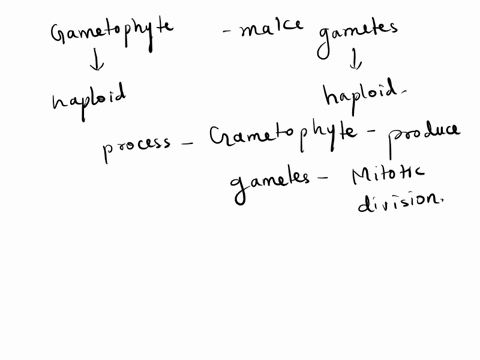 Gametophyte - make gametes
↓ ↓
haploid haploid.
process - Gametophyte - produce
gametes - Mitotic
division.